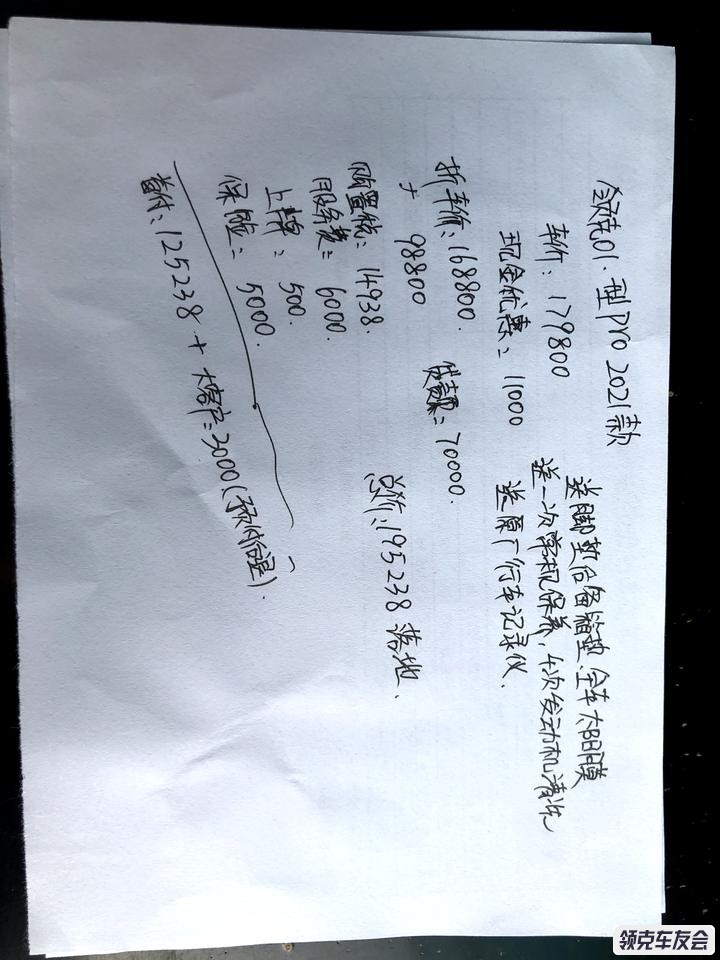 领克01.型Pro 2021款
车价: 179800
现金优惠: 11000
折车价: 168800. 贷款: 70000.
+ 98800
购置税: 14938. 总价: 195238 落地.
服务费: 6000.
上牌: 500.
保险: 5000.
首付: 125238 + 大客户: 3000
送脚垫后备箱垫、全车太阳膜
送一次单机保养, 4次发动机清洗
送原厂行车记录仪.
领克车友会